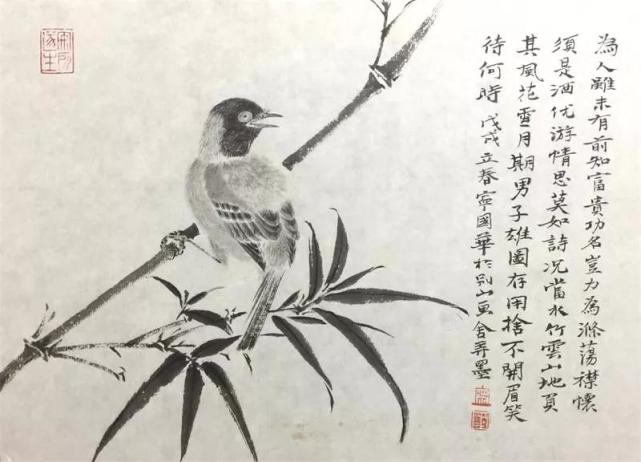 為人雖未有前知富貴功名豈力為滌蕩襟懷
須是酒优游情思莫如詩況當水竹雲山地負
其風花雪月期男子雄圖存用捨不開眉笑
待何時 戊戌立春寧國華於别山鱼舍弄墨